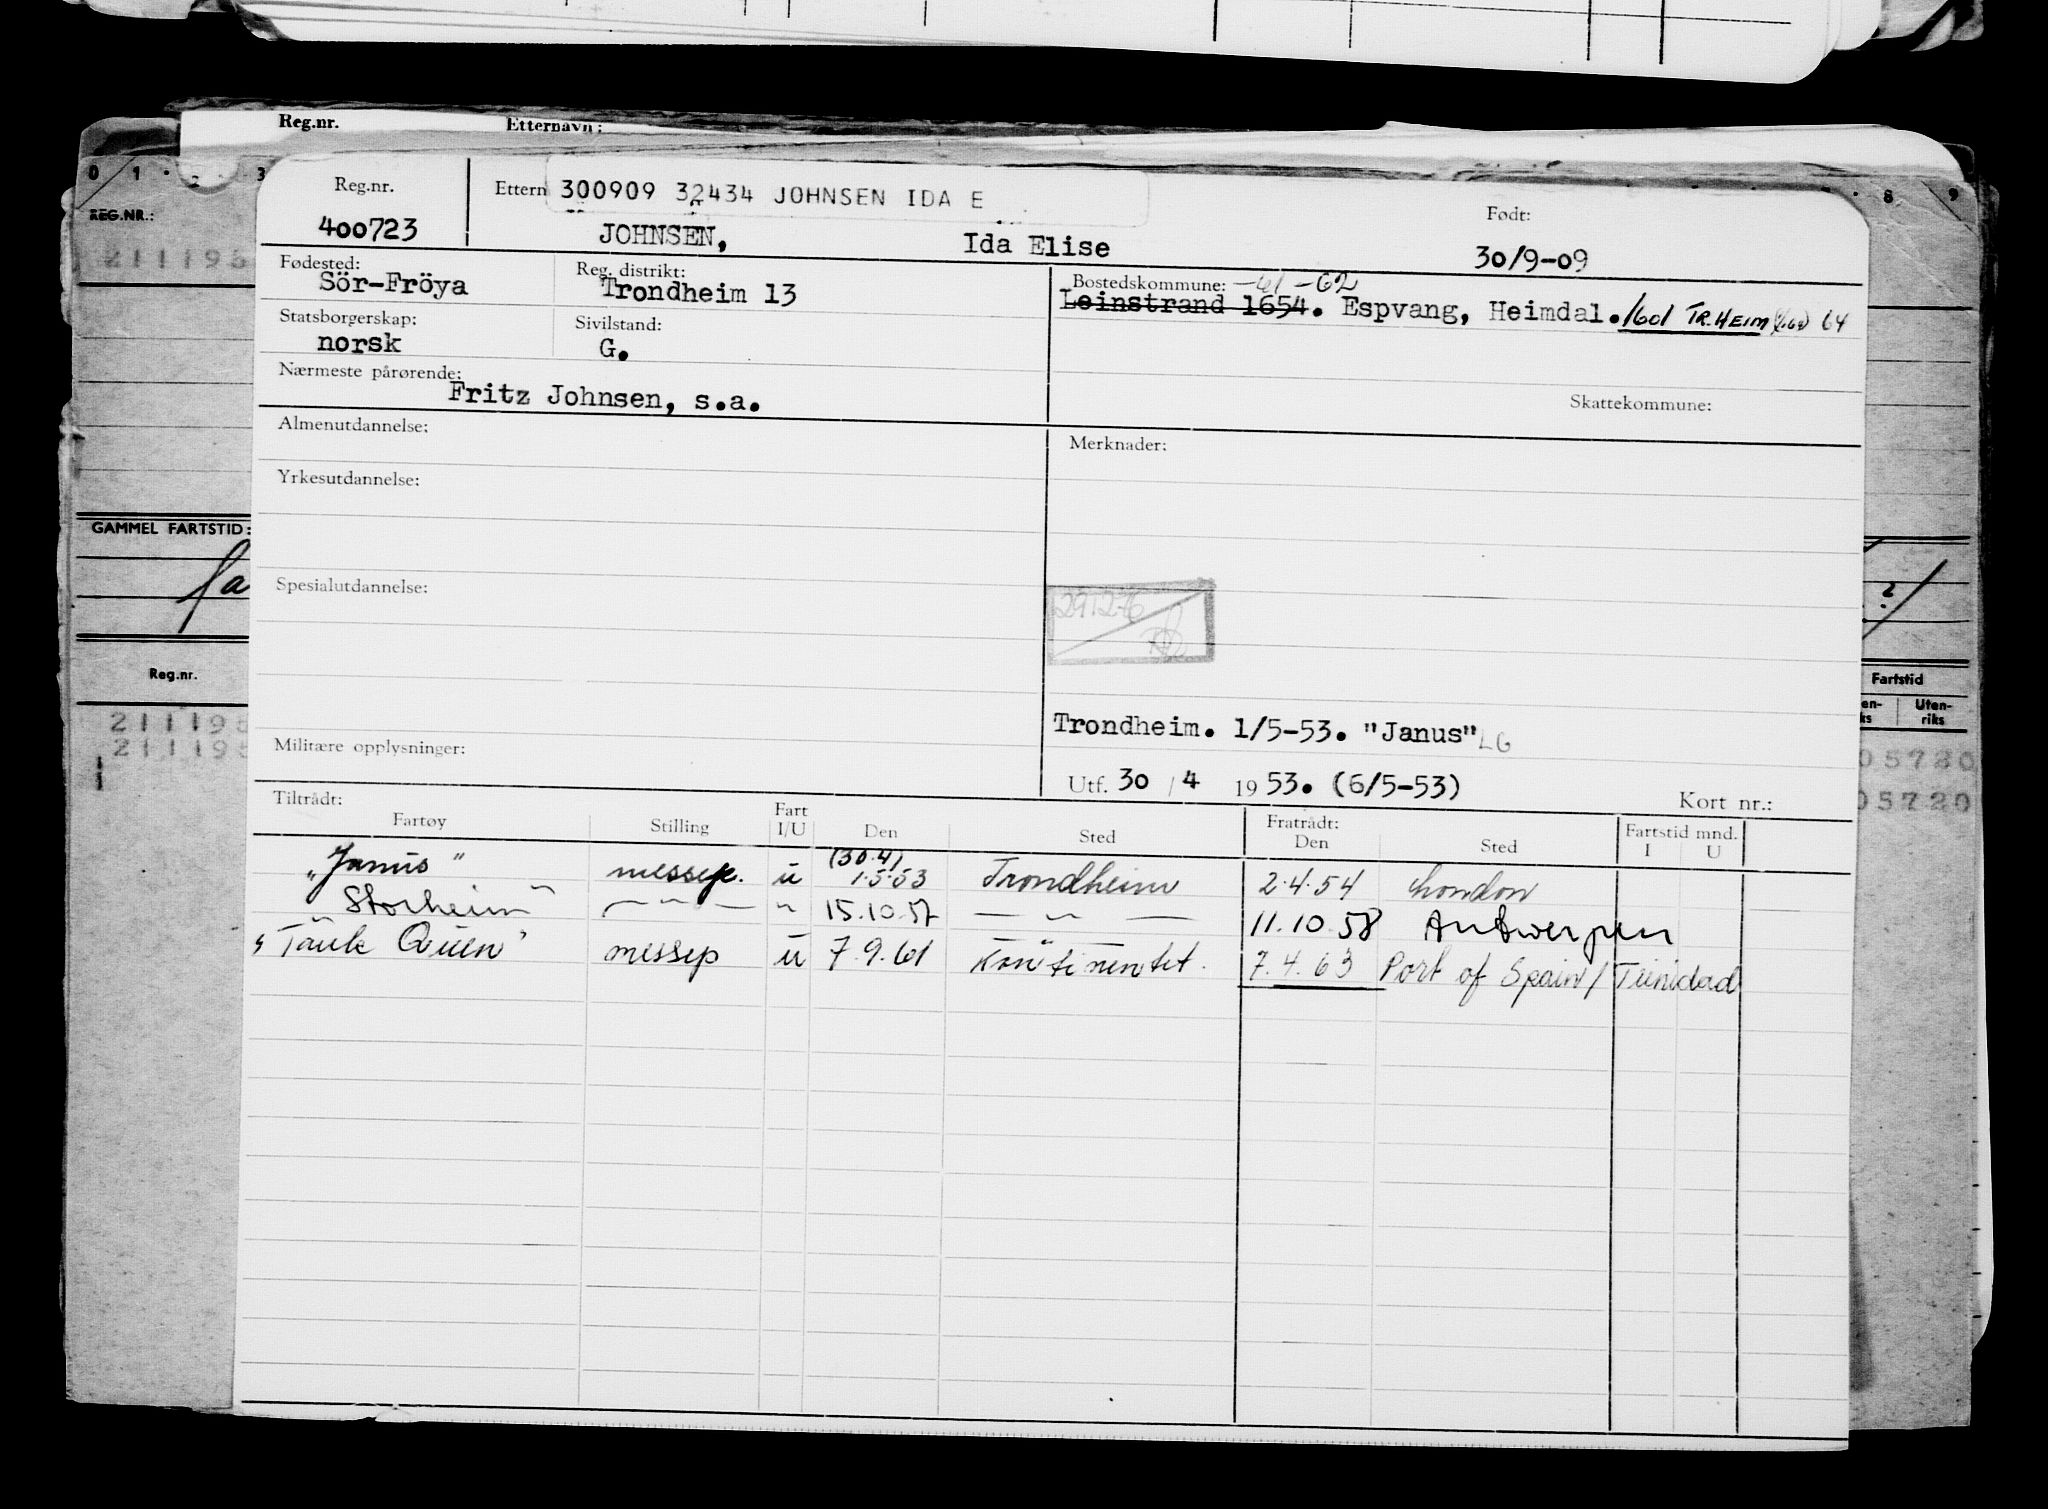 Reg.nr. Etternavn:
0 1 2 3 8 9
REG.NR.:
211195
GAMMEL FARTSTID:
Reg.nr.
211195
211195
Fartstid
Uten-
riks
05720
05720
Reg.nr. Ettern 300909 32434 JOHNSEN IDA E Født:
400723 JOHNSEN, Ida Elise 30/9-09
Fødested: Reg. distrikt: Bostedskommune: -61-62
Sör-Fröya Trondheim 13 Leinstrand 1654. Espvang, Heimdal. 1601 TR.HEIM 64
Statsborgerskap: Sivilstand:
norsk G.
Nærmeste pårørende:
Fritz Johnsen, s.a. Skattekommune:
Almenutdannelse: Merknader:
Yrkesutdannelse:
Spesialutdannelse:
291276
Trondheim. 1/5-53. "Janus" LG
Militære opplysninger:
Utf. 30 / 4 1953. (6/5-53) Kort nr.:
Tiltrådt: Fratrådt: Fartstid mnd.
Fartøy Stilling Fart I/U Den Sted Den Sted I U
(30.4)
"Janus" messep. u 1.5.53 Trondheim 2.4.54 London
Storheim" — " — " 15.10.57 — " — 11.10.58 Antwerpen
"Tank Queen" messep u 7.9.61 Kontinentet. 7.4.63 Port of Spain/Trinidad